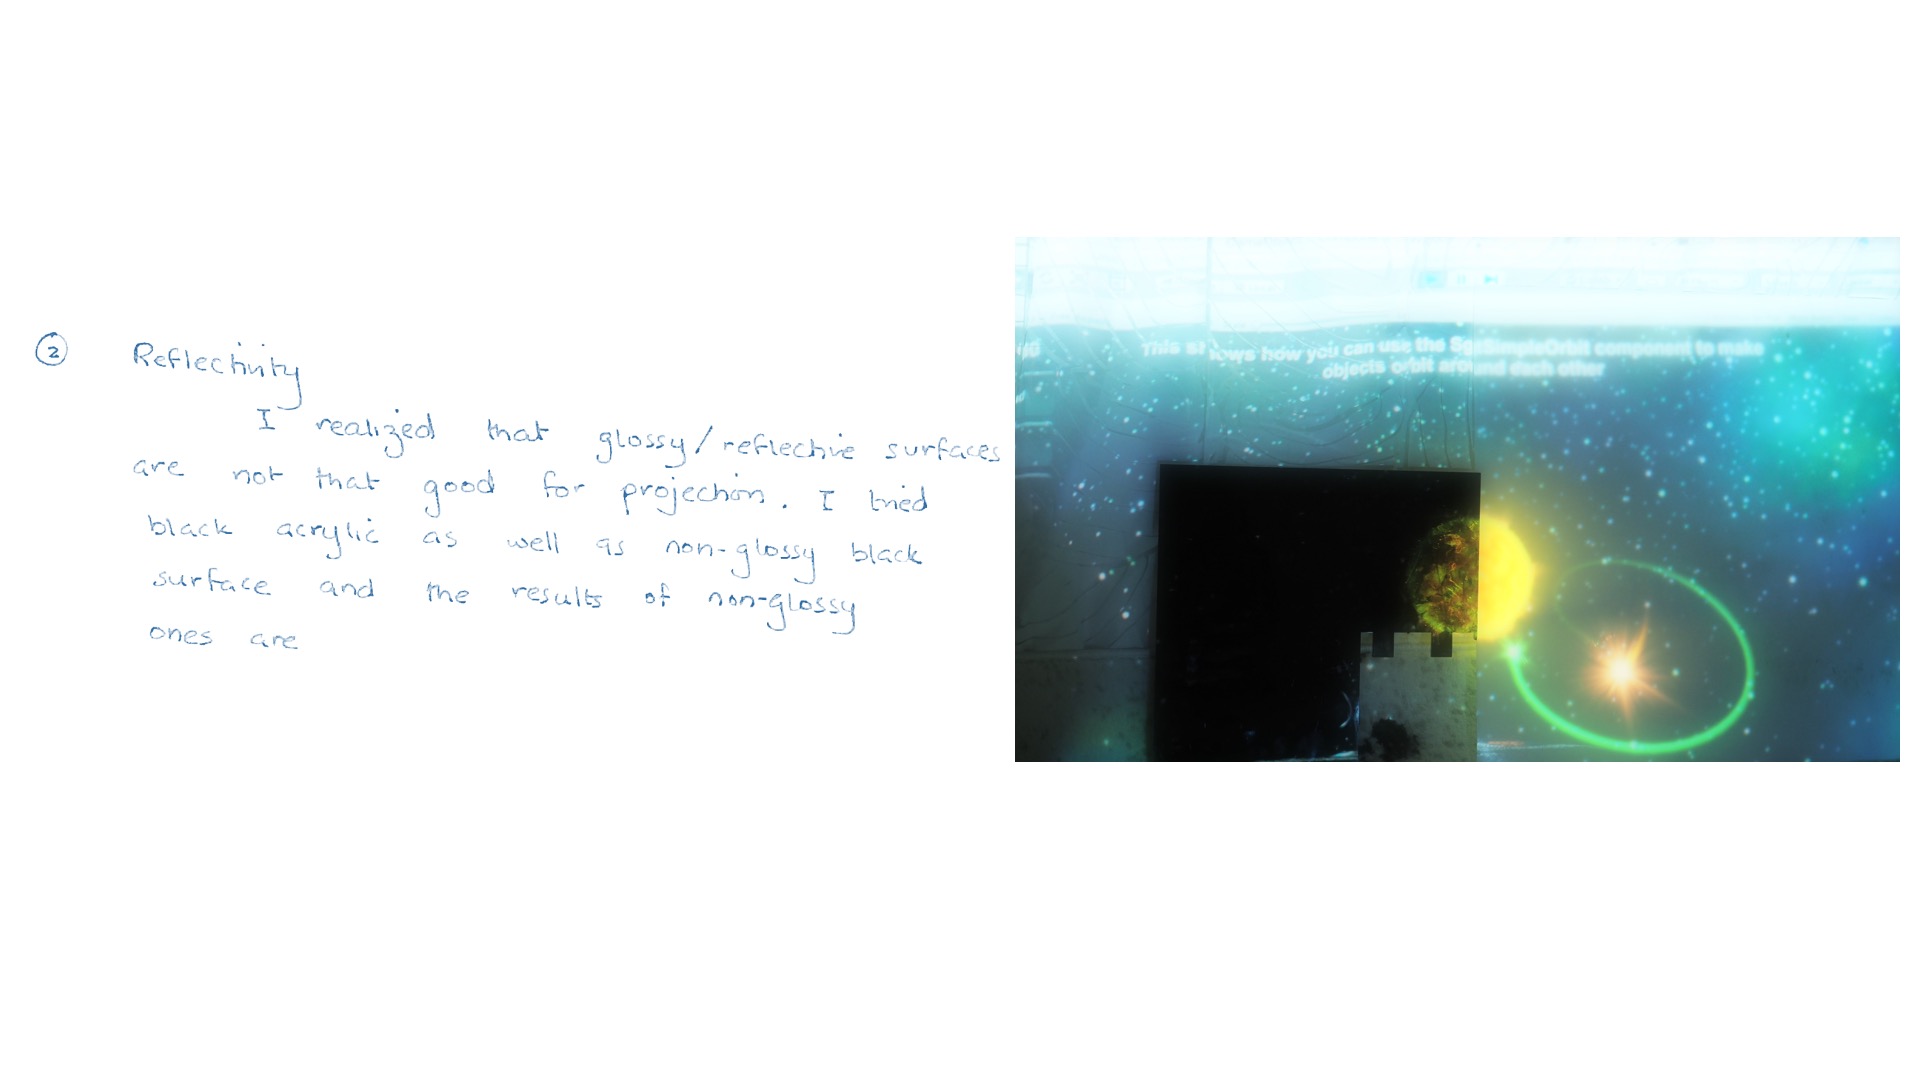 2 Reflectivity
I realized that glossy/reflective surfaces
are not that good for projection. I tried
black acrylic as well as non-glossy black
surface and the results of non-glossy
ones are
how you can use the component to make
objects orbit around each other